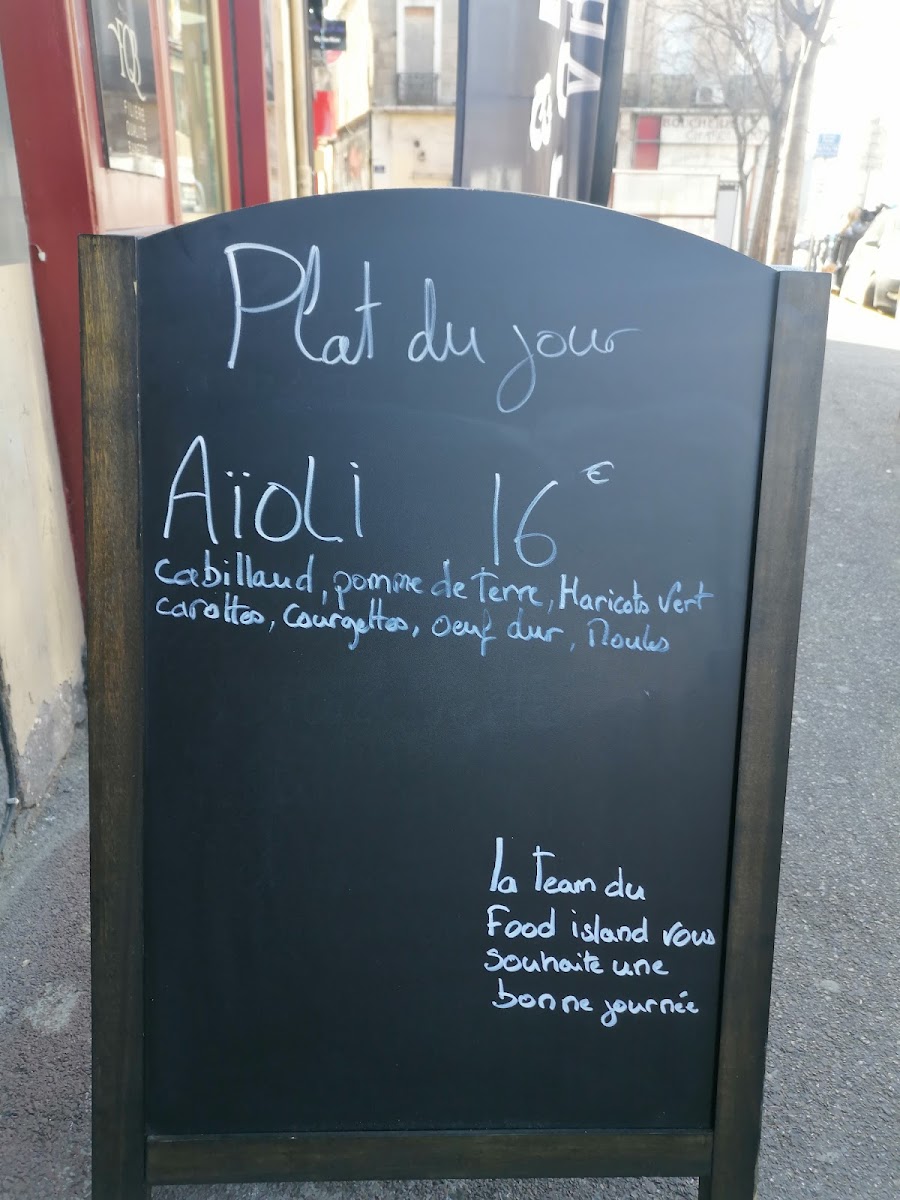 Plat du jour
Aïoli 16€
cabillaud, pomme de terre, Haricots Vert
carottes, courgettes, oeuf dur, Moules
la Team du
Food island vous
souhaite une
bonne journée